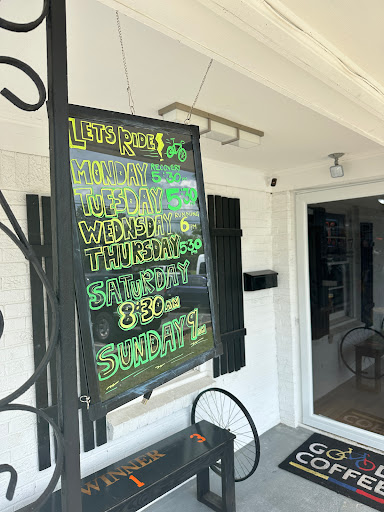 LETS RIDE
MONDAY RECOVERY 5:30
TUESDAY 5:30
WEDNSDAY RUNNING 6PM
THURSDAY 5:30
SATURDAY
8:30 AM
SUNDAY 9AM
WINNER
1
3
GOOD
COFFEE